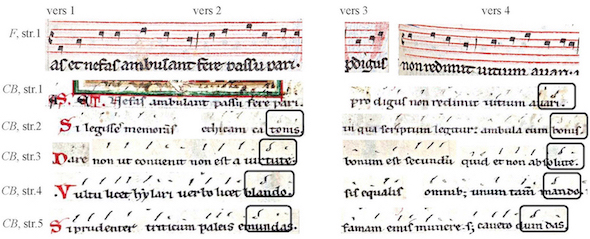 vers 1 vers 2 vers 3 vers 4
F, str.1
as et nefas ambulant fere passu pari. pdigus non redimit uitium auari.
CB, str.1
Fas et Nefas ambulant passu fere pari. pro digus non redimit uitium auari.
CB, str.2
Si legisse memoras ethicam ca tonis. in qua scriptum legitur: ambula cum bonis.
CB, str.3
Dare non ut conuenit non est a uirtute. bonum est secundu quid et non absolute.
CB, str.4
Vultu licet hylari uerbo licet blando. sis equalis omnib; unum tam mando.
CB, str.5
Si prudenter triticum paleis emundas. famam emis munere s; caueto dum das.